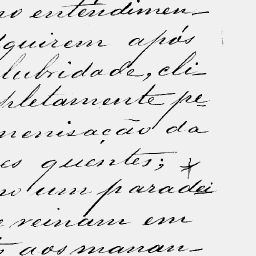 no entendimen-
quirem após
lubridade, cli-
pletamente pe-
menisação da
es quentes;
no um paradei
e reinam em
s aos manan-